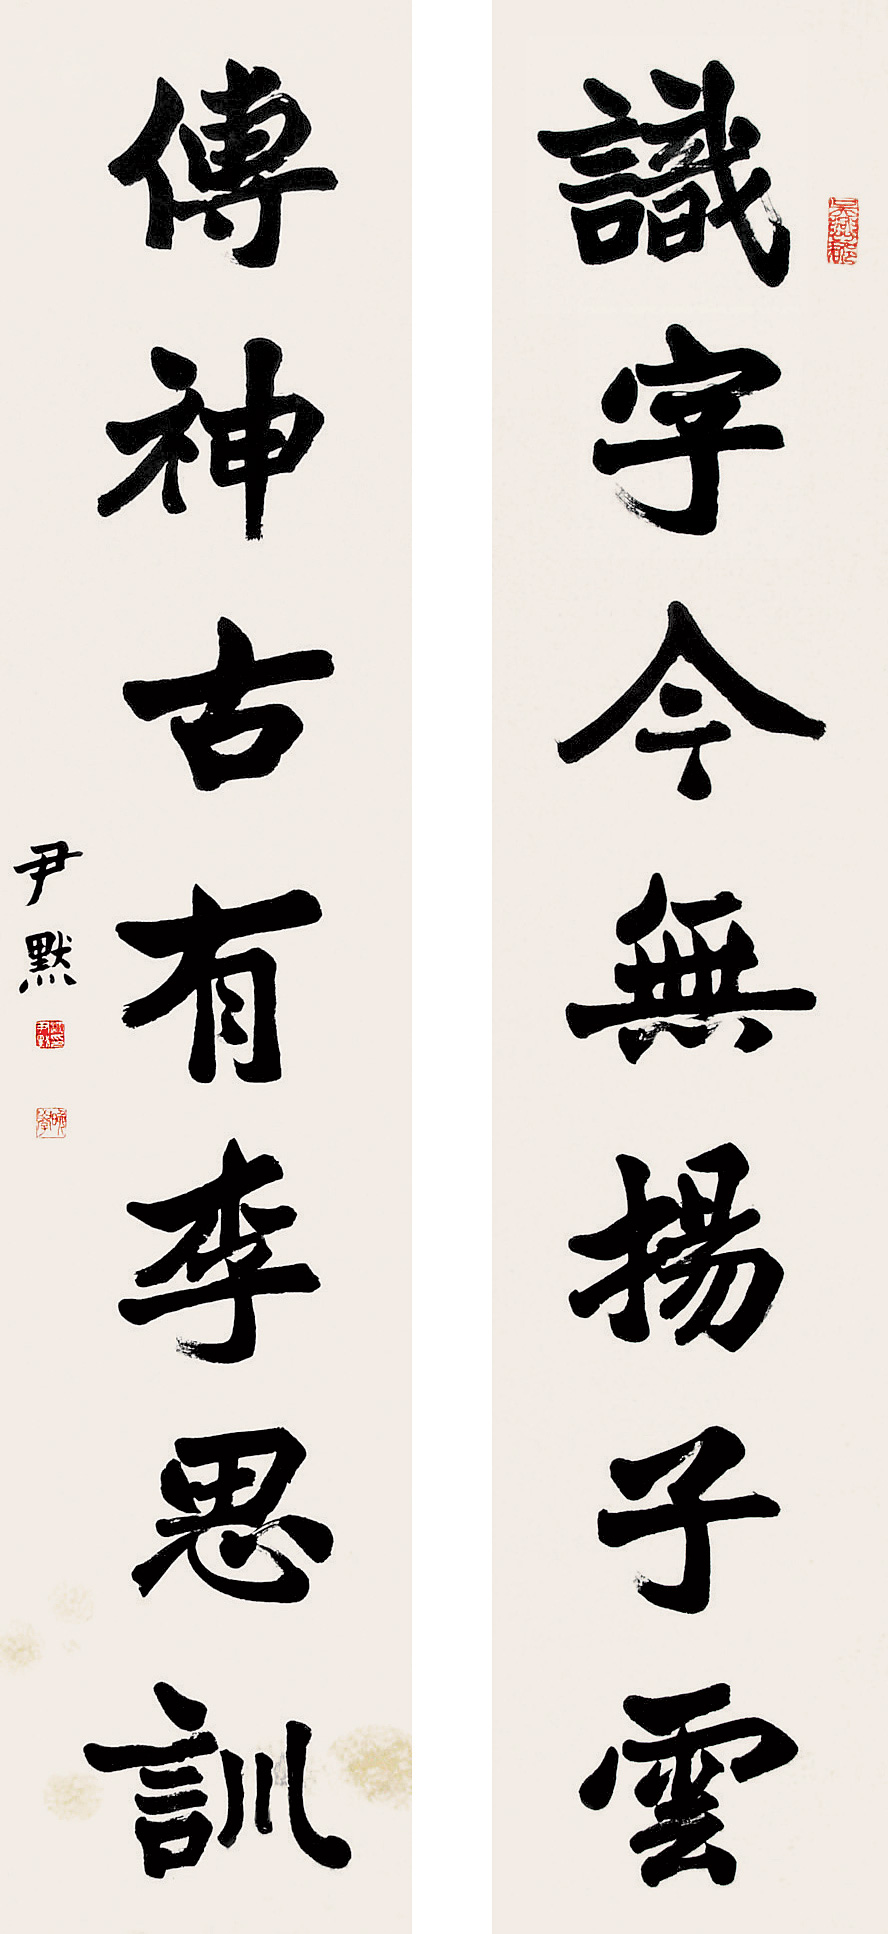 識字今無揚子雲
傳神古有李思訓
尹默